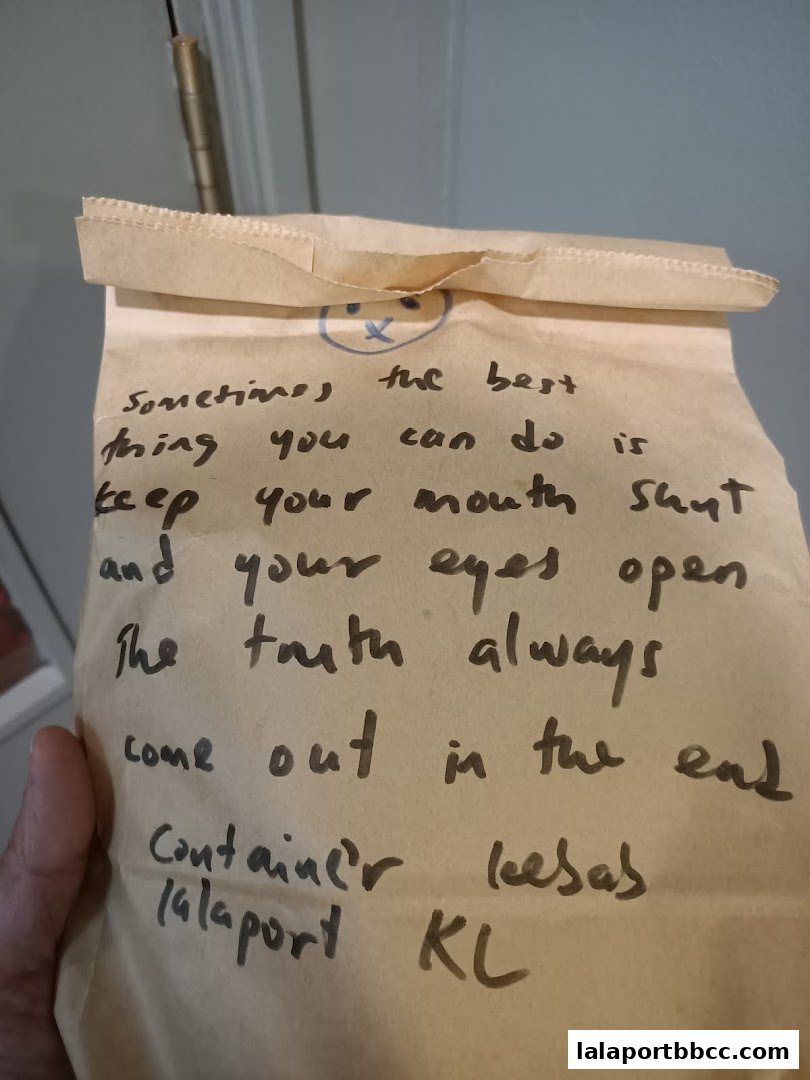 Sometimes the best
thing you can do is
keep your mouth shut
and your eyes open
The truth always
come out in the end
Container kebab
lalaport KL
lalaportbbcc.com